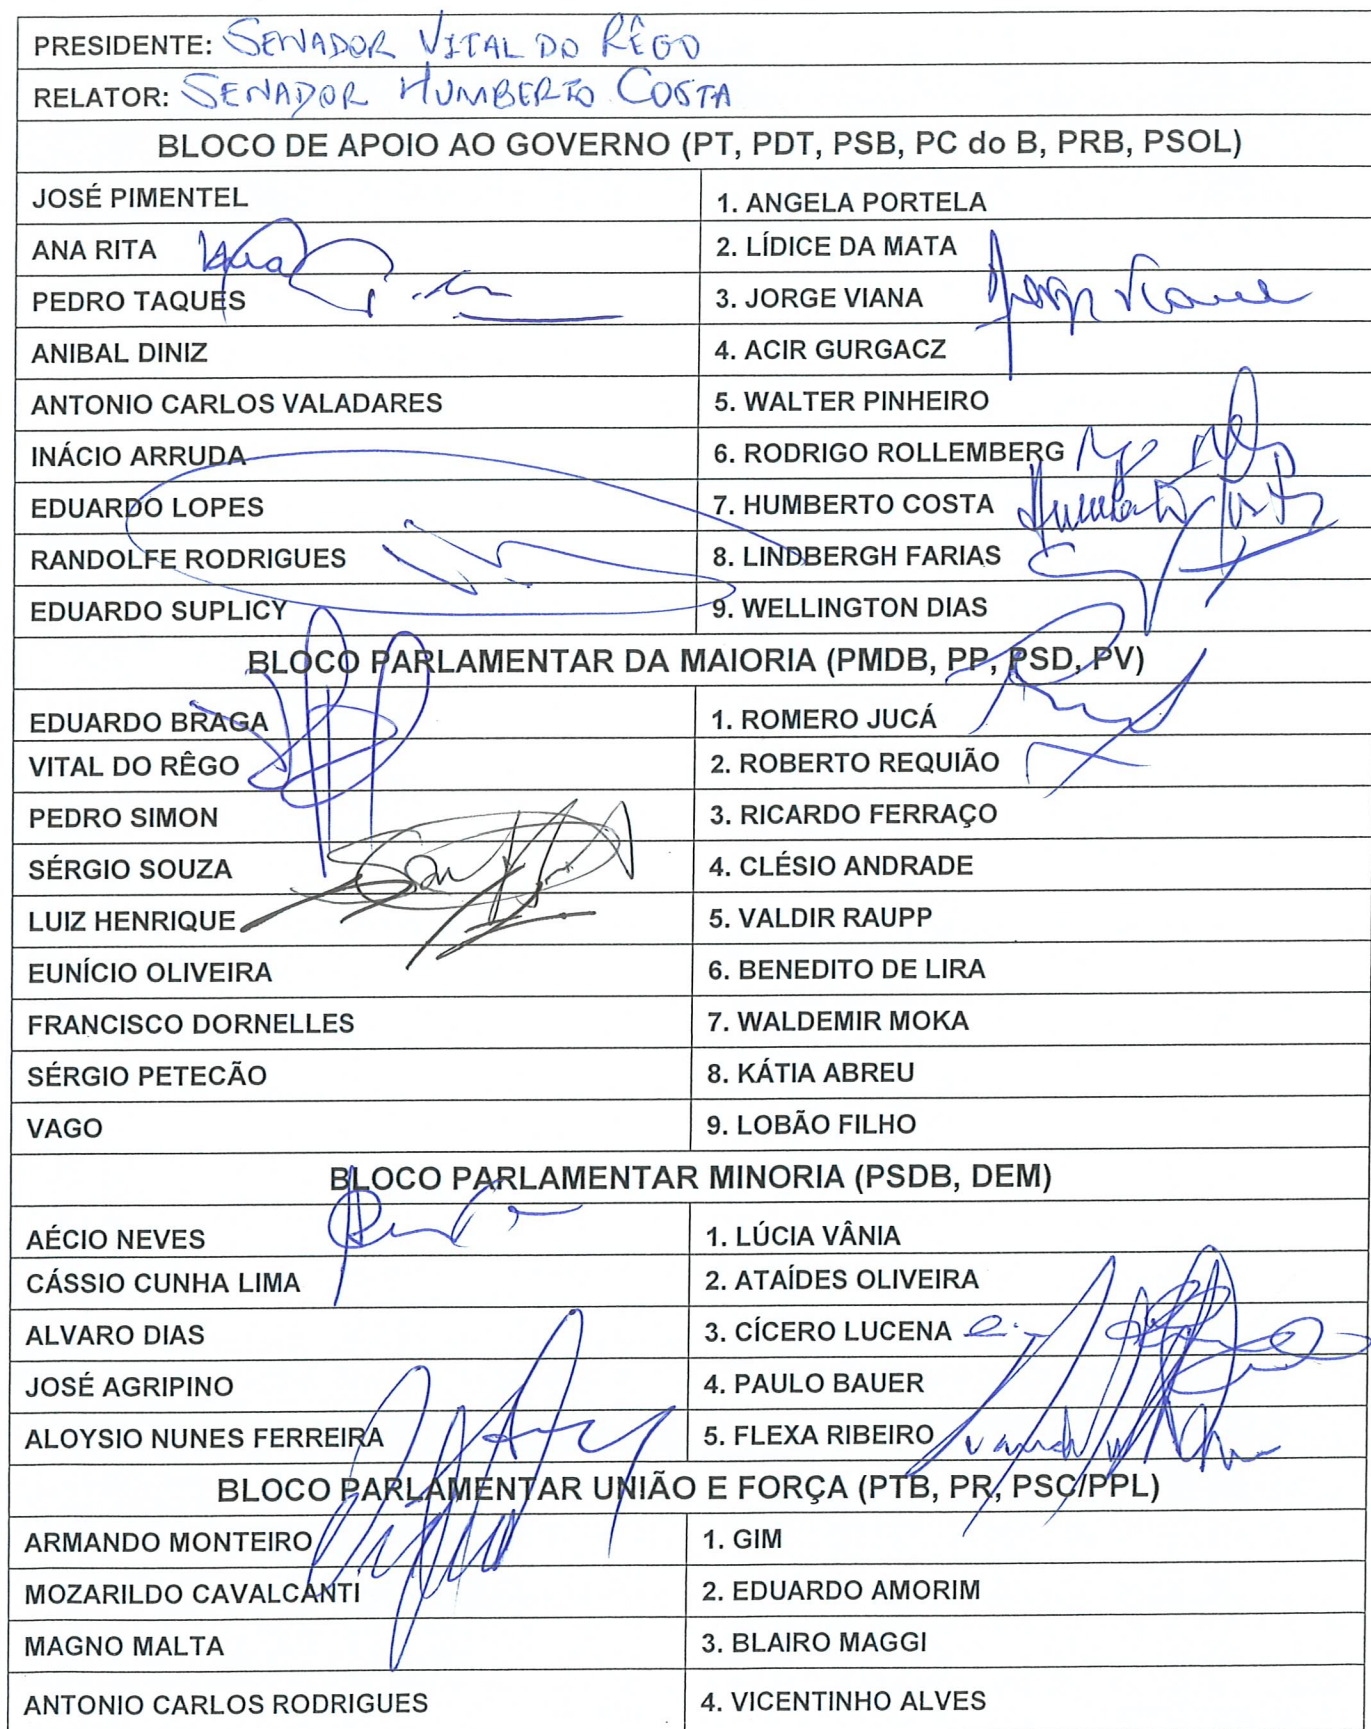 PRESIDENTE: SENADOR VITAL DO RÊGO
RELATOR: SENADOR HUMBERTO COSTA
BLOCO DE APOIO AO GOVERNO (PT, PDT, PSB, PC do B, PRB, PSOL)
JOSÉ PIMENTEL 1. ANGELA PORTELA
ANA RITA 2. LÍDICE DA MATA
PEDRO TAQUES 3. JORGE VIANA Jorge Viana
ANIBAL DINIZ 4. ACIR GURGACZ
ANTONIO CARLOS VALADARES 5. WALTER PINHEIRO
INÁCIO ARRUDA 6. RODRIGO ROLLEMBERG
EDUARDO LOPES 7. HUMBERTO COSTA Humberto Costa
RANDOLFE RODRIGUES 8. LINDBERGH FARIAS
EDUARDO SUPLICY 9. WELLINGTON DIAS
BLOCO PARLAMENTAR DA MAIORIA (PMDB, PP, PSD, PV)
EDUARDO BRAGA 1. ROMERO JUCÁ
VITAL DO RÊGO 2. ROBERTO REQUIÃO
PEDRO SIMON 3. RICARDO FERRAÇO
SÉRGIO SOUZA 4. CLÉSIO ANDRADE
LUIZ HENRIQUE 5. VALDIR RAUPP
EUNÍCIO OLIVEIRA 6. BENEDITO DE LIRA
FRANCISCO DORNELLES 7. WALDEMIR MOKA
SÉRGIO PETECÃO 8. KÁTIA ABREU
VAGO 9. LOBÃO FILHO
BLOCO PARLAMENTAR MINORIA (PSDB, DEM)
AÉCIO NEVES 1. LÚCIA VÂNIA
CÁSSIO CUNHA LIMA 2. ATAÍDES OLIVEIRA
ALVARO DIAS 3. CÍCERO LUCENA
JOSÉ AGRIPINO 4. PAULO BAUER
ALOYSIO NUNES FERREIRA 5. FLEXA RIBEIRO
BLOCO PARLAMENTAR UNIÃO E FORÇA (PTB, PR, PSC/PPL)
ARMANDO MONTEIRO 1. GIM
MOZARILDO CAVALCANTI 2. EDUARDO AMORIM
MAGNO MALTA 3. BLAIRO MAGGI
ANTONIO CARLOS RODRIGUES 4. VICENTINHO ALVES